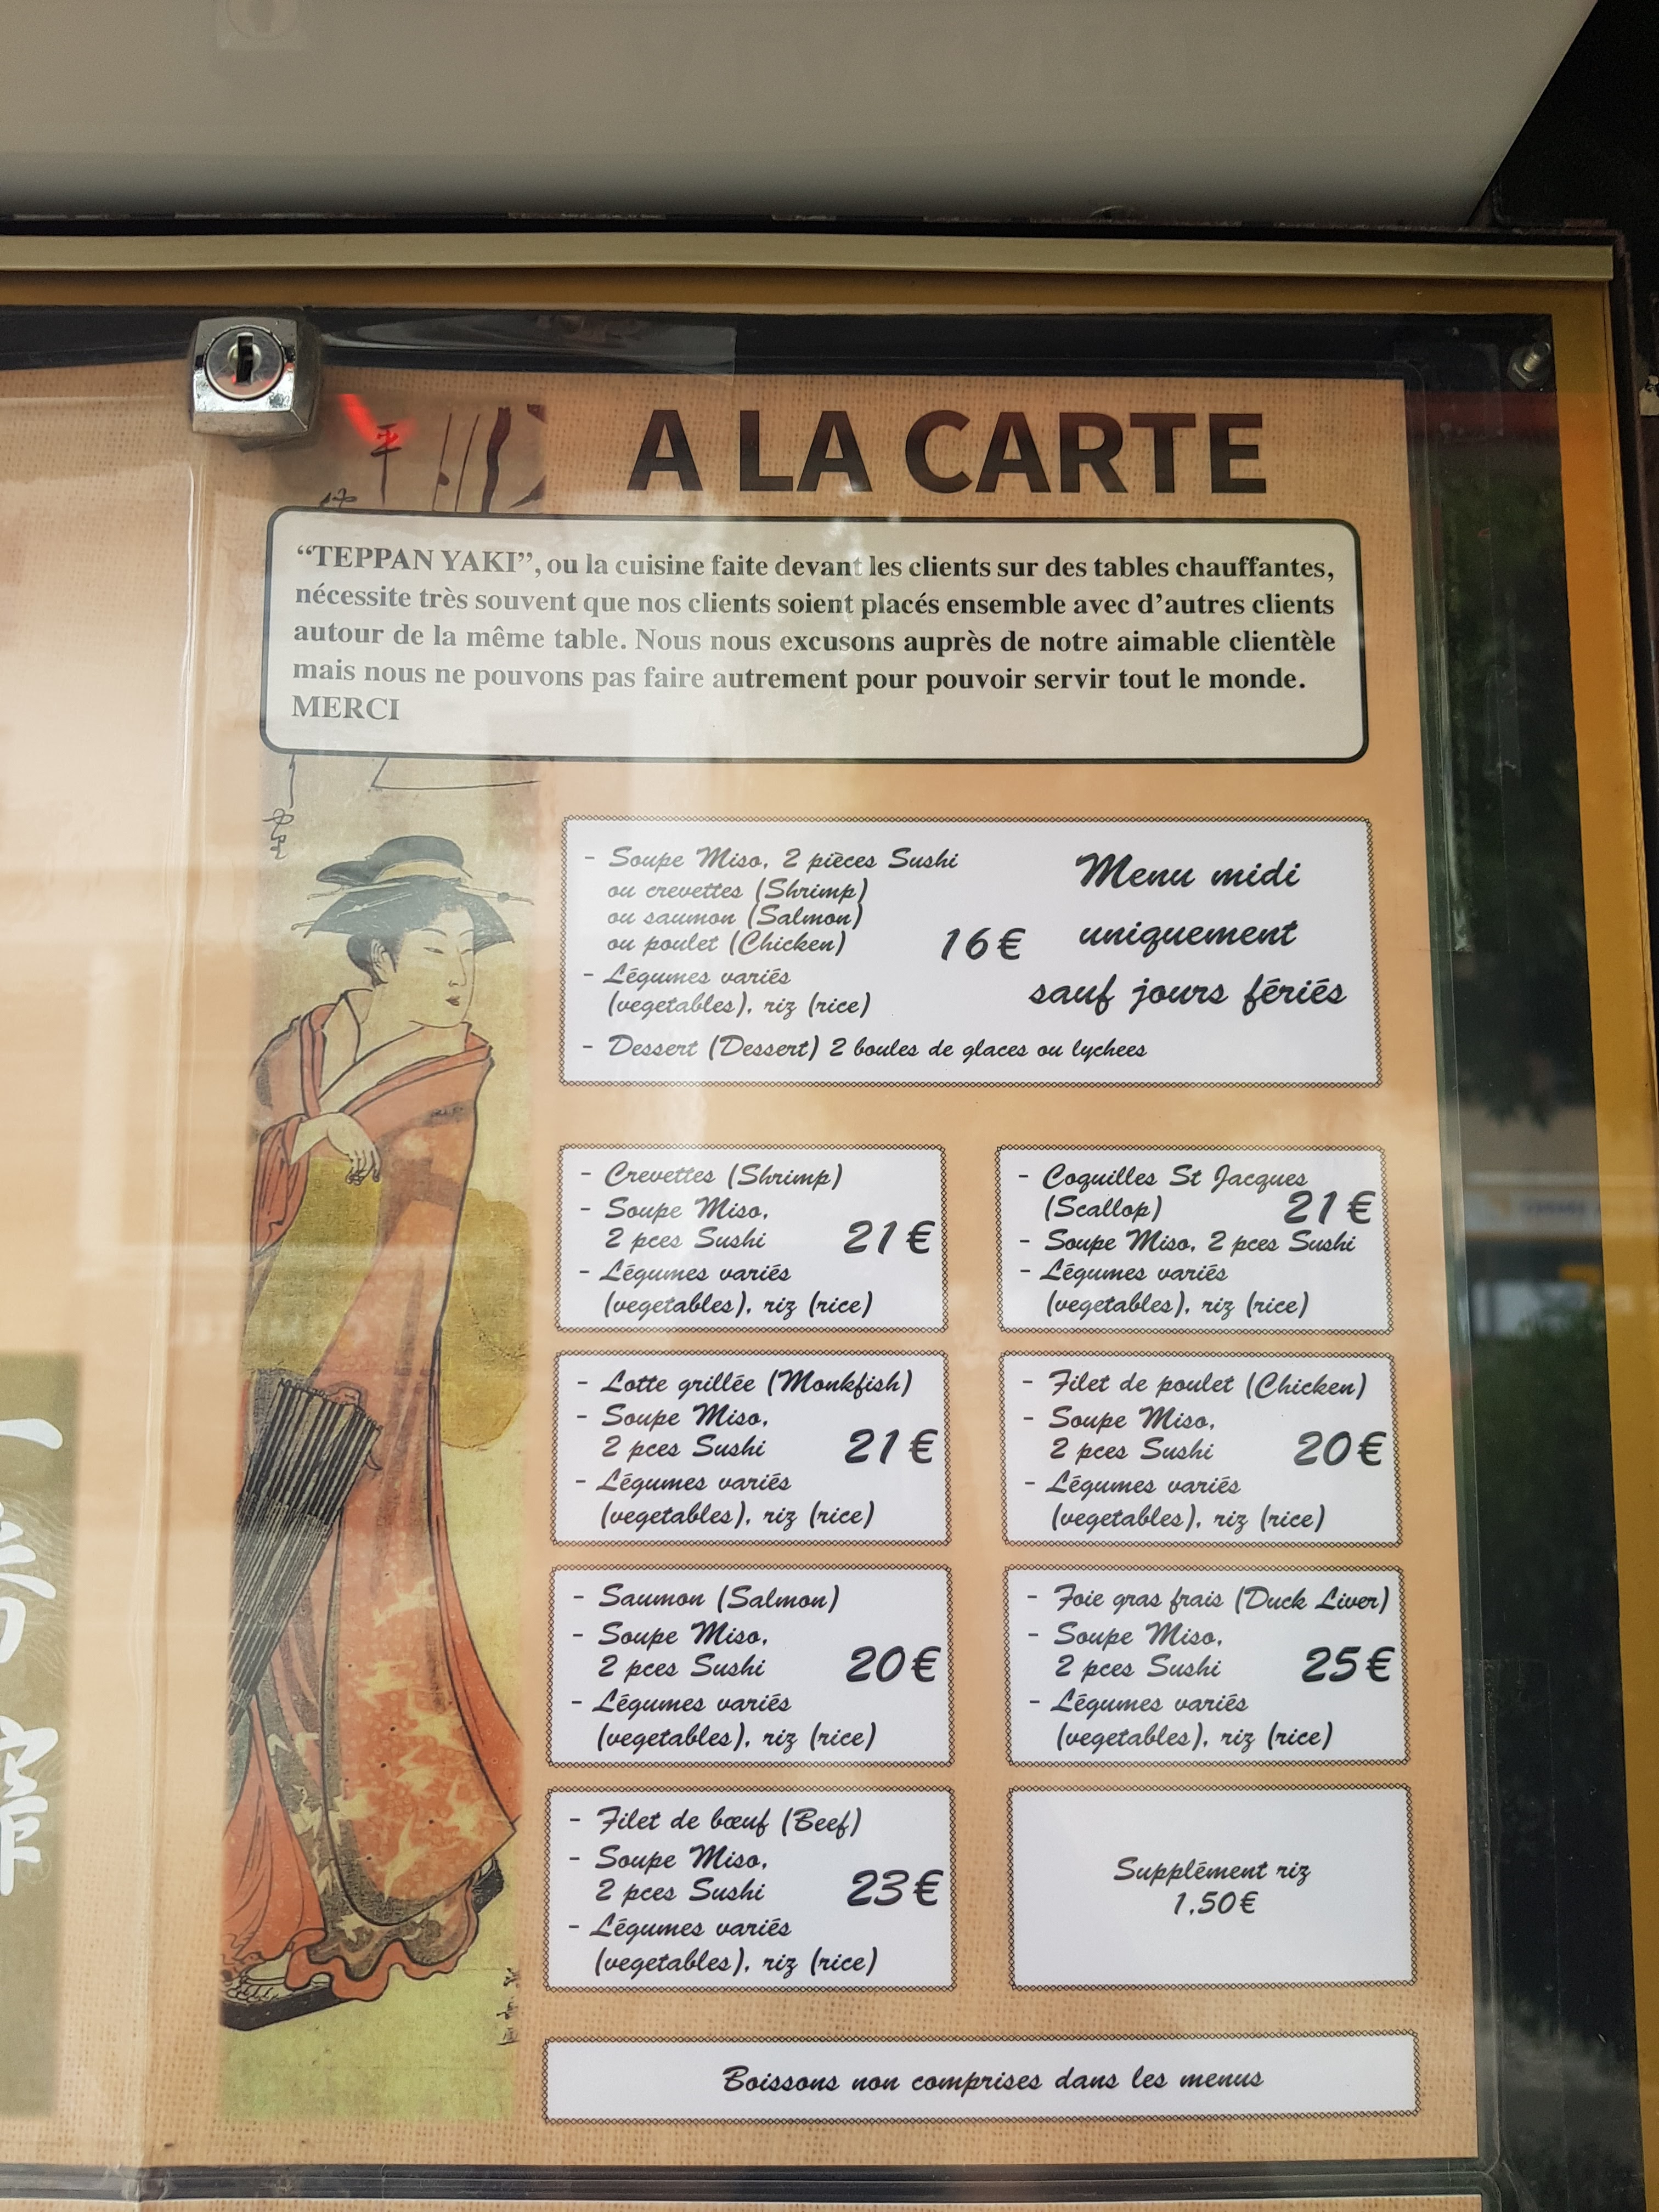 A LA CARTE
“TEPPAN YAKI”, ou la cuisine faite devant les clients sur des tables chauffantes,
nécessite très souvent que nos clients soient placés ensemble avec d’autres clients
autour de la même table. Nous nous excusons auprès de notre aimable clientèle
mais nous ne pouvons pas faire autrement pour pouvoir servir tout le monde.
MERCI
- Soupe Miso, 2 pièces Sushi
ou crevettes (Shrimp)
ou saumon (Salmon)
ou poulet (Chicken)
- Légumes variés
(vegetables), riz (rice)
- Dessert (Dessert) 2 boules de glaces ou lychees
16€
Menu midi
uniquement
sauf jours fériés
- Crevettes (Shrimp)
- Soupe Miso,
2 pces Sushi
21€
- Légumes variés
(vegetables), riz (rice)
- Coquilles St Jacques
(Scallop)
21€
- Soupe Miso, 2 pces Sushi
- Légumes variés
(vegetables), riz (rice)
- Lotte grillée (Monkfish)
- Soupe Miso,
2 pces Sushi
21€
- Légumes variés
(vegetables), riz (rice)
- Filet de poulet (Chicken)
- Soupe Miso,
2 pces Sushi
20€
- Légumes variés
(vegetables), riz (rice)
- Saumon (Salmon)
- Soupe Miso,
2 pces Sushi
20€
- Légumes variés
(vegetables), riz (rice)
- Foie gras frais (Duck Liver)
- Soupe Miso,
2 pces Sushi
25€
- Légumes variés
(vegetables), riz (rice)
- Filet de bœuf (Beef)
- Soupe Miso,
2 pces Sushi
23€
- Légumes variés
(vegetables), riz (rice)
Supplément riz
1.50€
Boissons non comprises dans les menus